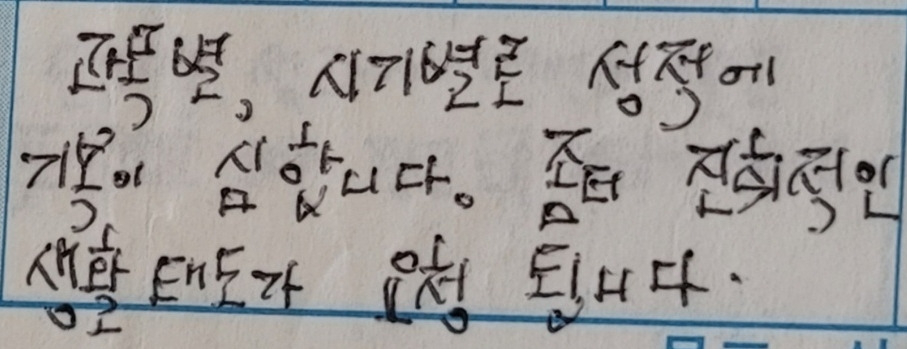 과목별, 시기별로 성적에
기복이 심합니다. 좀더 진취적인
생활태도가 요청 됩니다.